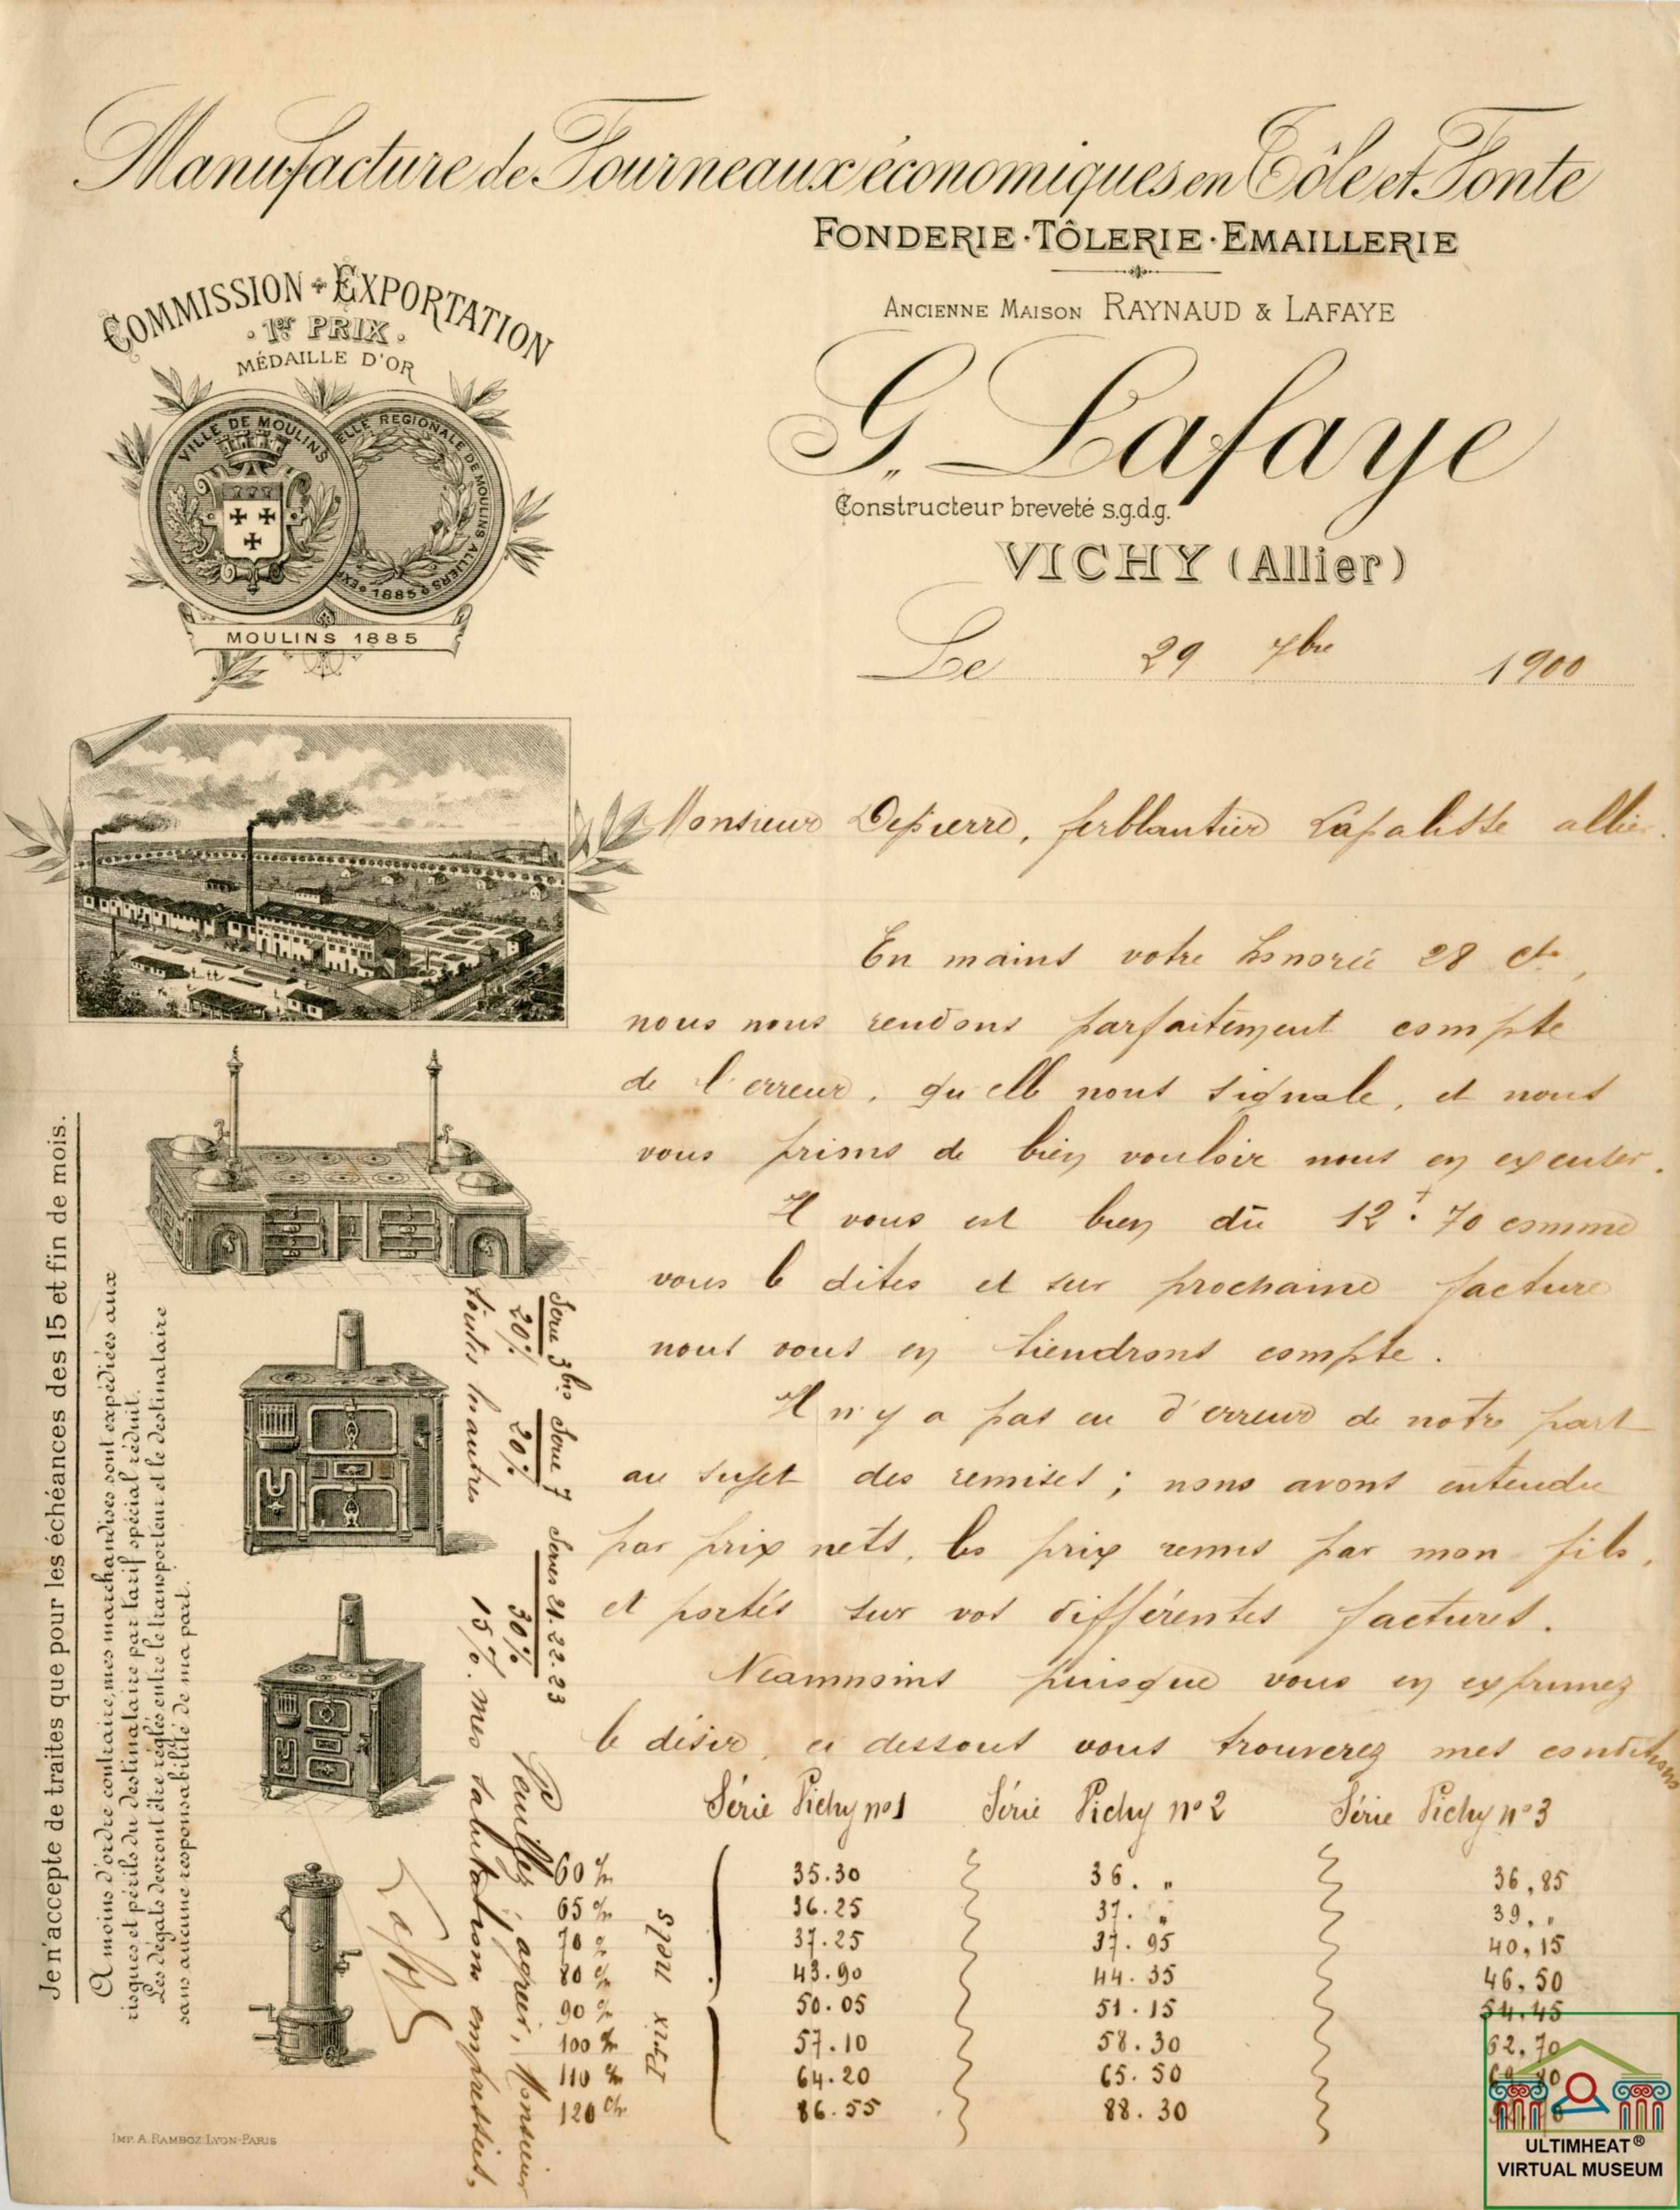 Manufacture de Fourneaux économiques en Tôle et Fonte
FONDERIE · TÔLERIE · EMAILLERIE
ANCIENNE MAISON RAYNAUD & LAFAYE
G. Lafaye
Constructeur breveté s.g.d.g.
VICHY (Allier)
Le 29 7bre 1900
COMMISSION EXPORTATION
1er PRIX
MÉDAILLE D'OR
VILLE DE MOULINS
ELLE REGIONALE DE MOULINS ALLIERS
EXP 1885
MOULINS 1885
Monsieur Depierre, ferblantier Lapalisse allier.
En mains votre honorée 28 ct,
nous nous rendons parfaitement compte
de l'erreur, qu'elle nous signale, et nous
vous prions de bien vouloir nous en excuser.
Il vous est bien dû 12f.70 comme
vous le dites et sur prochaine facture
nous vous en tiendrons compte.
Il n'y a pas eu d'erreur de notre part
au sujet des remises ; nous avons entendu
par prix nets, les prix remis par mon fils,
et portés sur vos différentes factures.
Néammoins puisque vous en exprimez
le désir, ci dessous vous trouverez mes conditions
Série Vichy n°1 Série Vichy n°2 Série Vichy n°3
60 c/m 35.30 36. " 36,85
65 c/m 36.25 37. " 39, "
70 c/m 37.25 37.95 40,15
80 c/m 43.90 44.35 46,50
90 c/m 50.05 51.15 54.45
100 c/m 57.10 58.30 62,70
110 c/m 64.20 65.50
120 c/m 86.55 88.30
Prix nets
Serie 3bis Serie 7 Series 21.22.23
20% 20% 30%
toutes les autres 15%.
Veuillez agréer, Monsieur
mes salutations empressées,
Lafaye
Je n'accepte de traites que pour les échéances des 15 et fin de mois.
A moins d'ordre contraire, mes marchandises sont expédiées aux
risques et périls du destinataire par tarif spécial réduit.
Les dégats devront être réglés entre le transporteur et le destinataire
sans aucune responsabilité de ma part.
IMP. A. RAMBOZ LYON-PARIS
ULTIMHEAT®
VIRTUAL MUSEUM